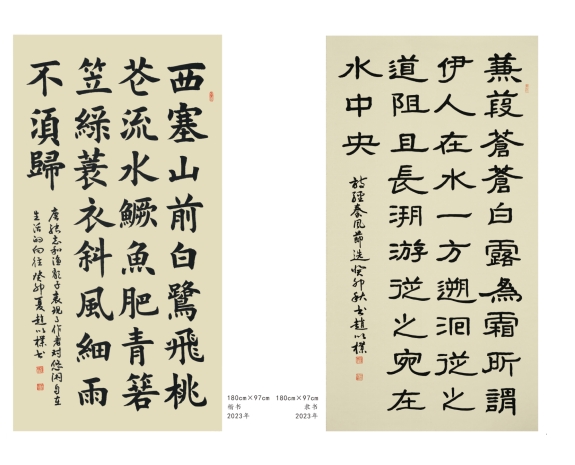 西塞山前白鷺飛桃
花流水鱖魚肥青箬
笠綠蓑衣斜風細雨
不須歸
唐張志和漁歌子表現了作者对悠闲自在
生活的向往癸卯夏趙以樸书
180cm×97cm
楷书
2023年
蒹葭蒼蒼白露為霜所謂
伊人在水一方遡洄從之
道阻且長溯游從之宛在
水中央
詩經秦风節选癸卯秋书趙以樸
180cm×97cm
隶书
2023年